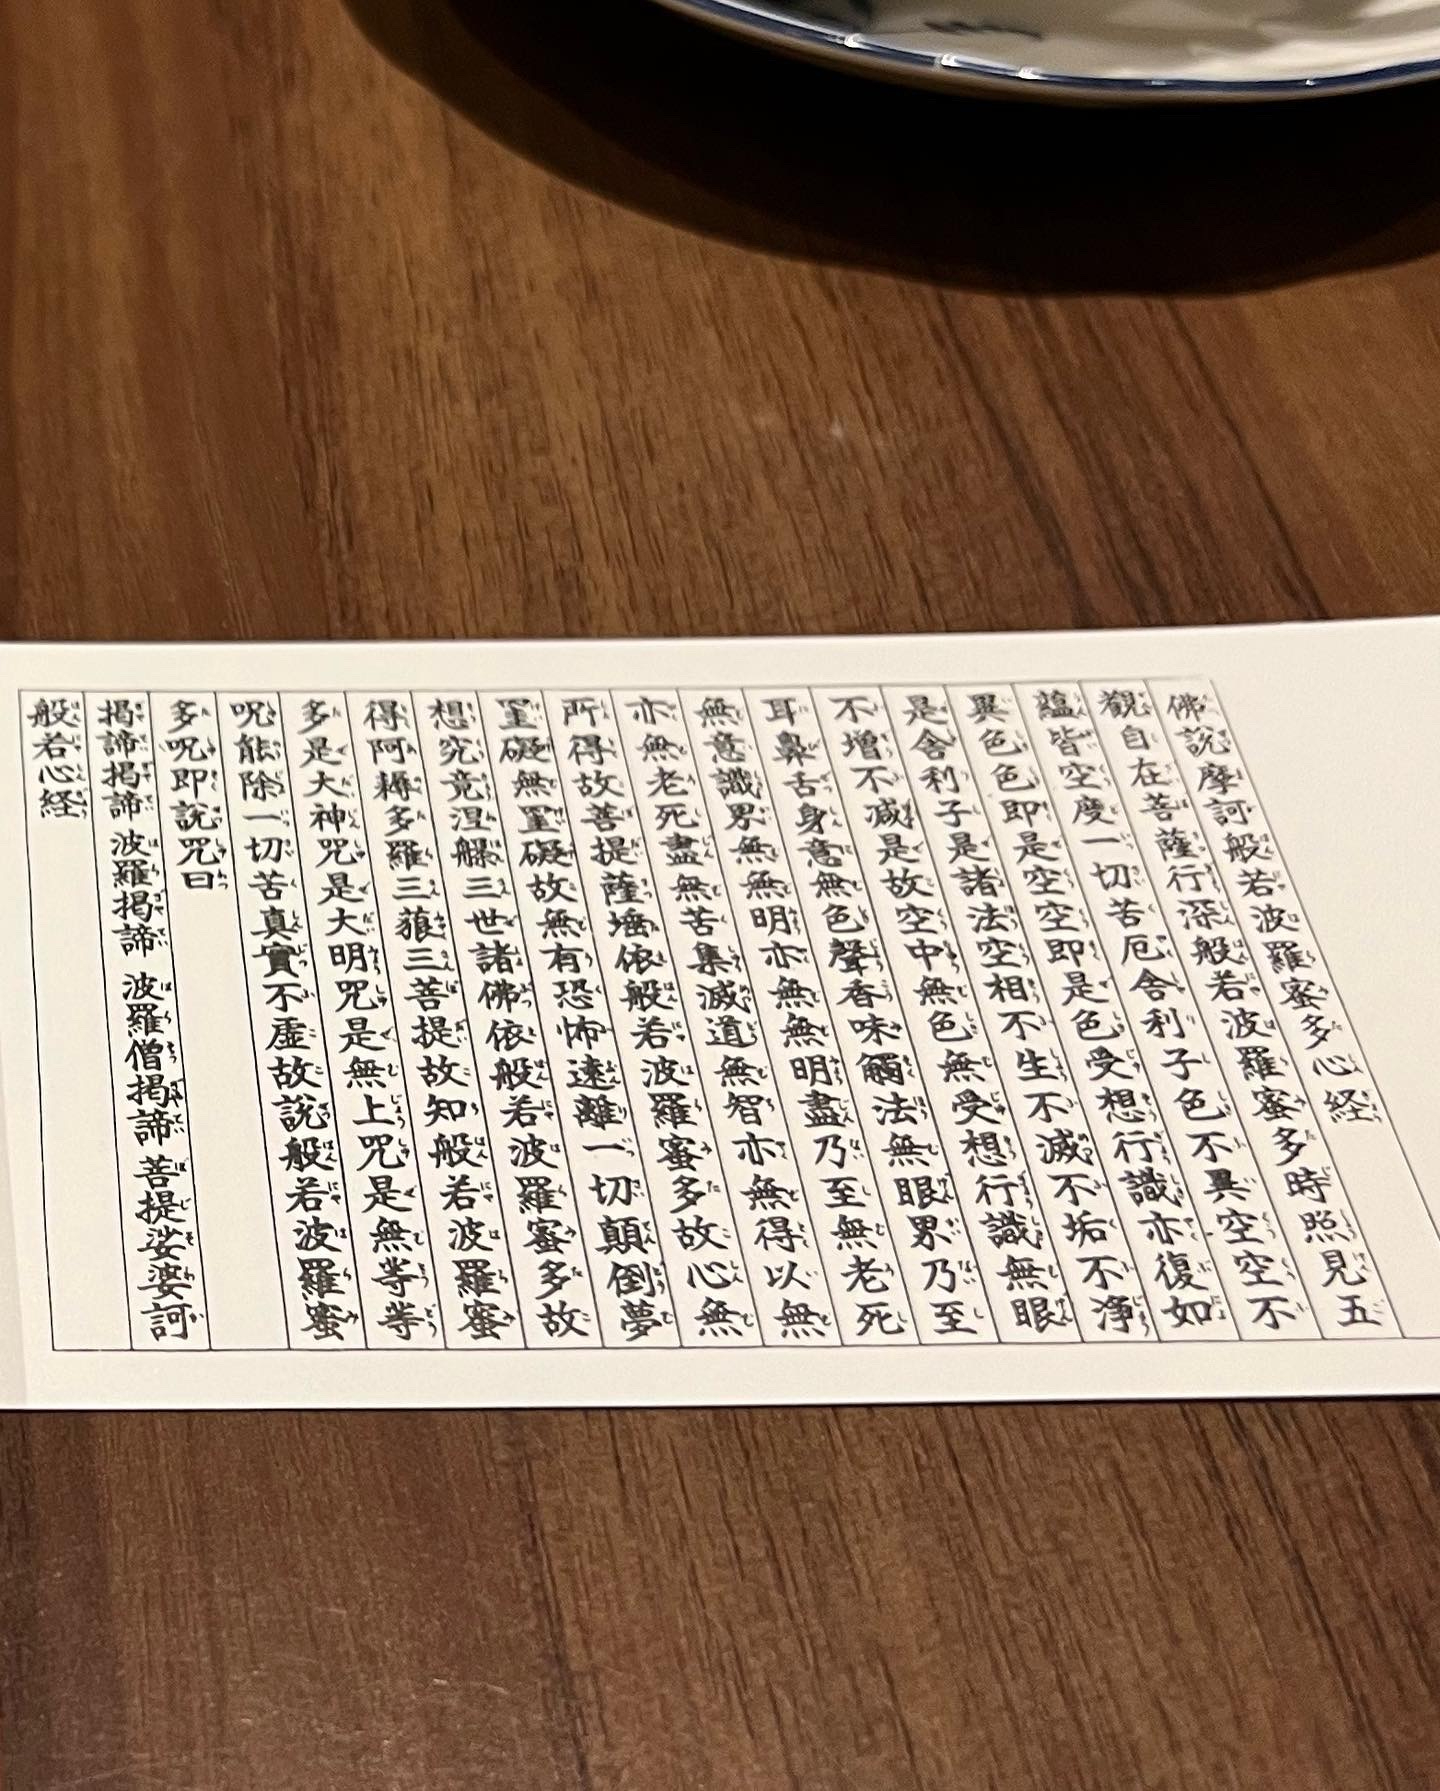 佛説摩訶般若波羅蜜多心経
觀自在菩薩行深般若波羅蜜多時照見五
蘊皆空度一切苦厄舎利子色不異空空不
異色色即是空空即是色受想行識亦復如
是舎利子是諸法空相不生不滅不垢不浄
不増不減是故空中無色無受想行識無眼
耳鼻舌身意無色聲香味觸法無眼界乃至
無意識界無無明亦無無明盡乃至無老死
亦無老死盡無苦集滅道無智亦無得以無
所得故菩提薩埵依般若波羅蜜多故心無
罣礙無罣礙故無有恐怖遠離一切顛倒夢
想究竟涅槃三世諸佛依般若波羅蜜多故
得阿耨多羅三藐三菩提故知般若波羅蜜
多是大神咒是大明咒是無上咒是無等等
呪能除一切苦真實不虛故説般若波羅蜜
多呪即説咒曰
掲諦掲諦 波羅掲諦 波羅僧掲諦 菩提娑婆訶
般若心経